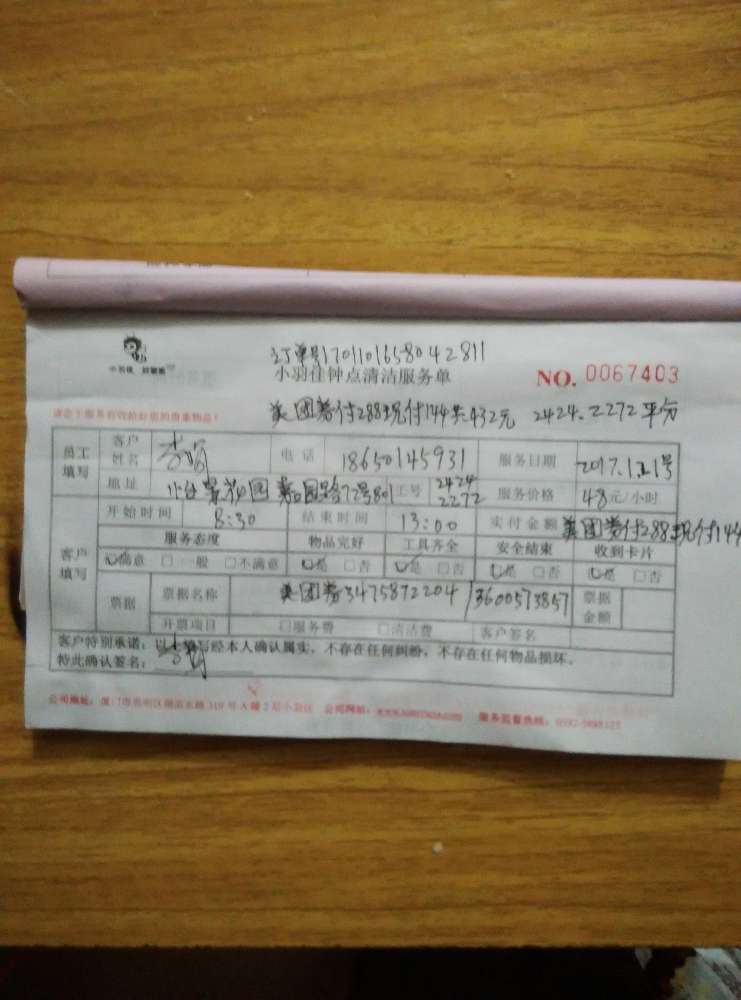 订单号1701101658042811
小羽佳 好家嫂
小羽佳钟点清洁服务单 NO. 0067403
美团券付288现付144共432元 2424.2272平分
员工填写 客户姓名 电话 18650145931 服务日期 2017.1.11号
地址 园路72号801 工号 2424 2272 服务价格 48元/小时
客户填写 开始时间 8:30 结束时间 13:00 实付金额 美团券付288现付144
服务态度 物品完好 工具齐全 安全结束 收到卡片
满意 □一般 □不满意 是 □否 是 □否 是 □否 是 □否
票据 票据名称 美团券3475872204/3600573857 票据金额
开票项目 □服务费 □清洁费 客户签名
客户特别承诺:以上填写经本人确认属实,不存在任何纠纷,不存在任何物品损坏。
特此确认签名:
公司地址:厦门市思明区湖滨东路319号A幢2层小羽佳 公司网站: 服务监督热线: